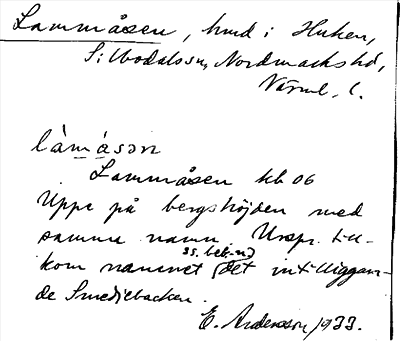 Lammåsen, hmd i Huken,
Silbodalssn, Nordmarkshd,
Värml. l.
làmáson
Lammåsen kb 06
Uppe på bergshöjden med
samma namn. Urspr. till-
kom namnet det intilliggan-
de Smediebacken.
E. Andersson 1933.